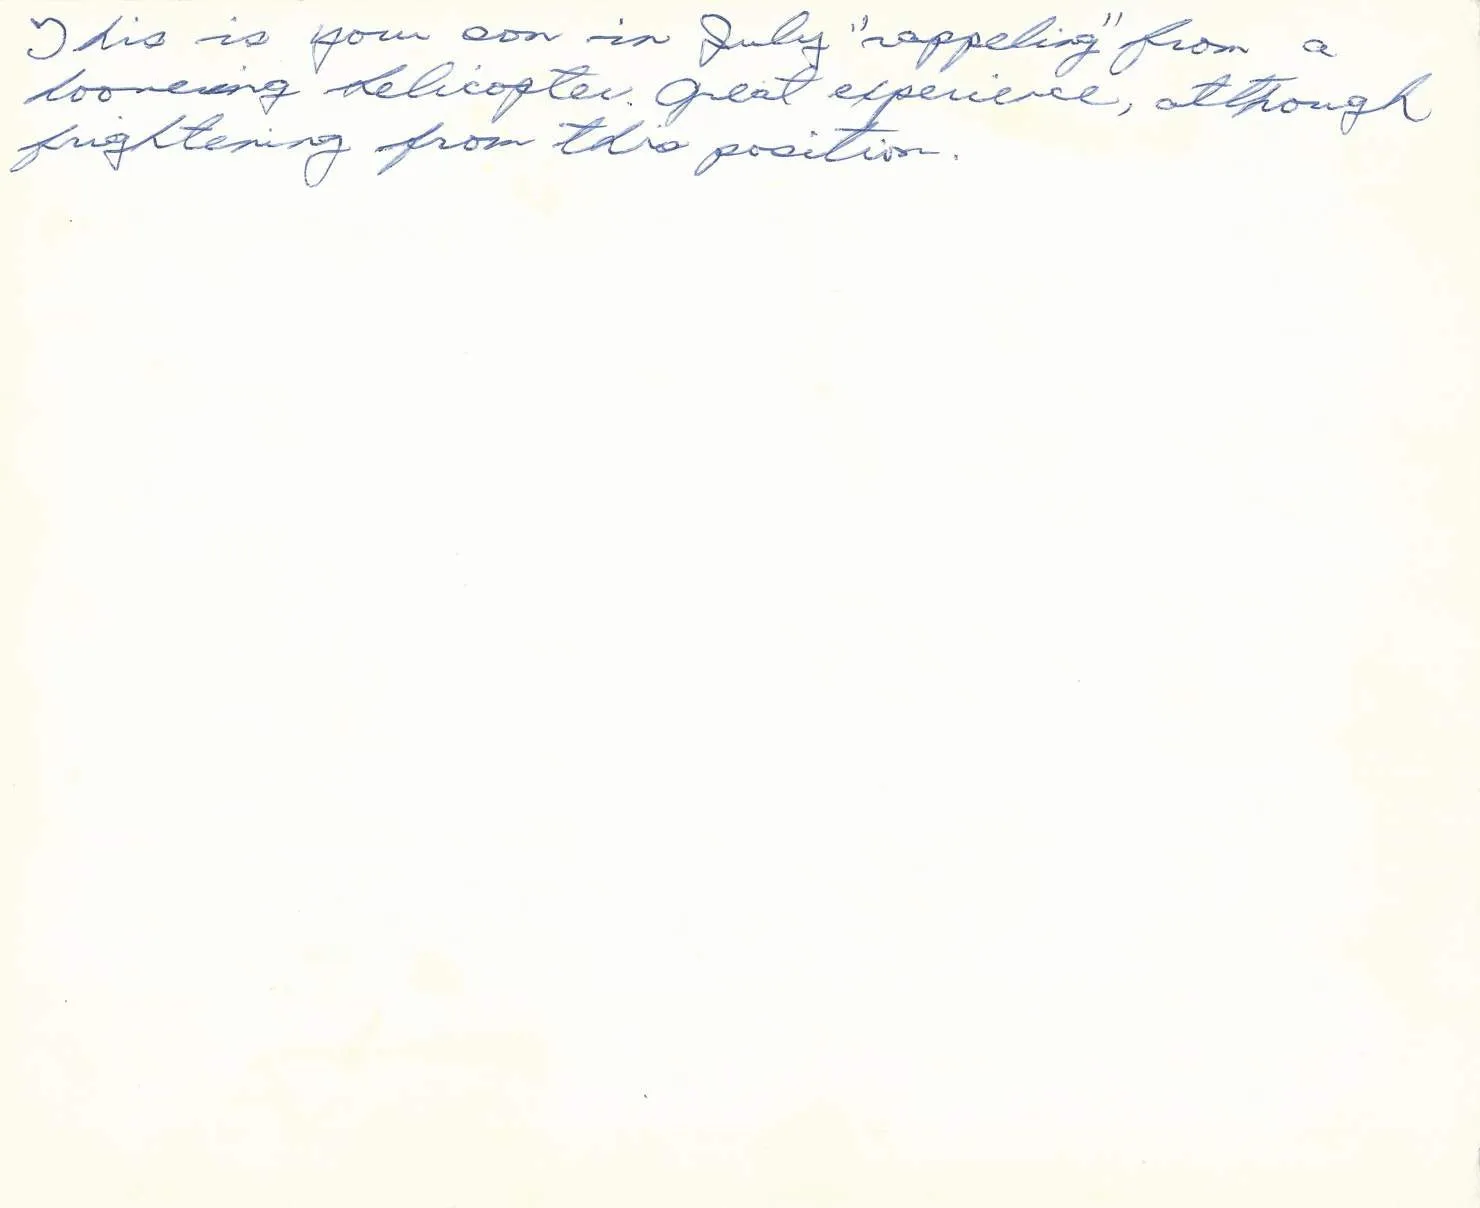 This is your son in July "rappeling" from a
hoovering helicopter. Great experience, although
frightening from this position.